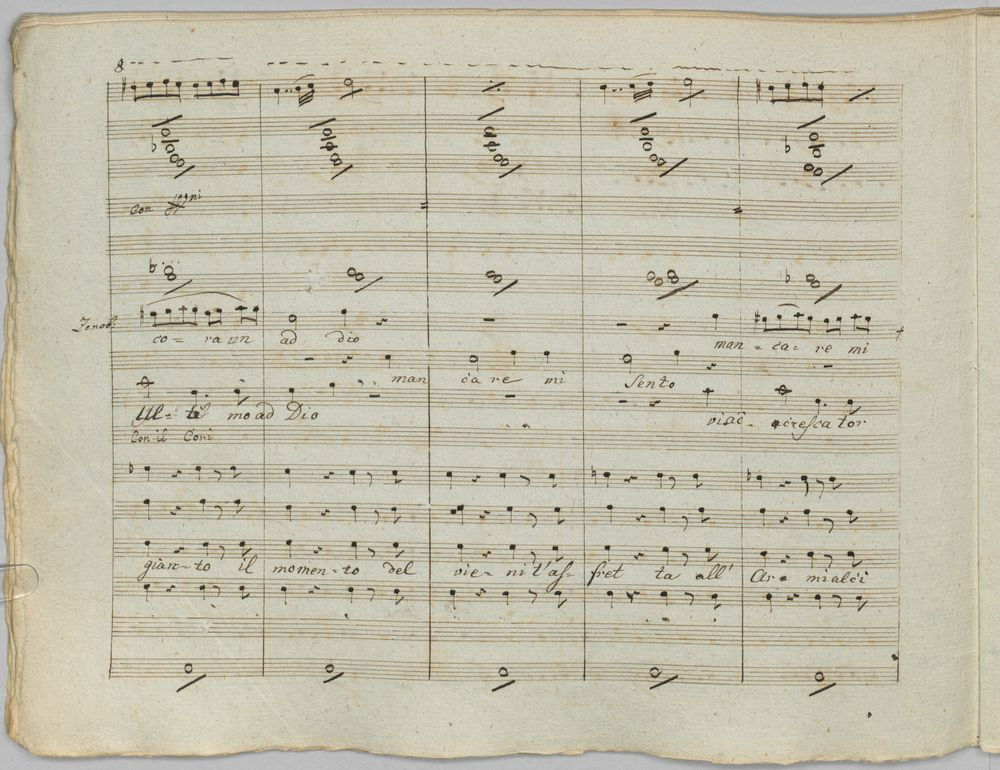 8
Con
Zenob:
co = ra un ad dio
man = ca = re mi
man ca re mi Sento
Ul = ti mo ad Dio
Con il Cori
gian = to il momen = to del vie = ni t'af = fret ta all' Ar = mi al ci